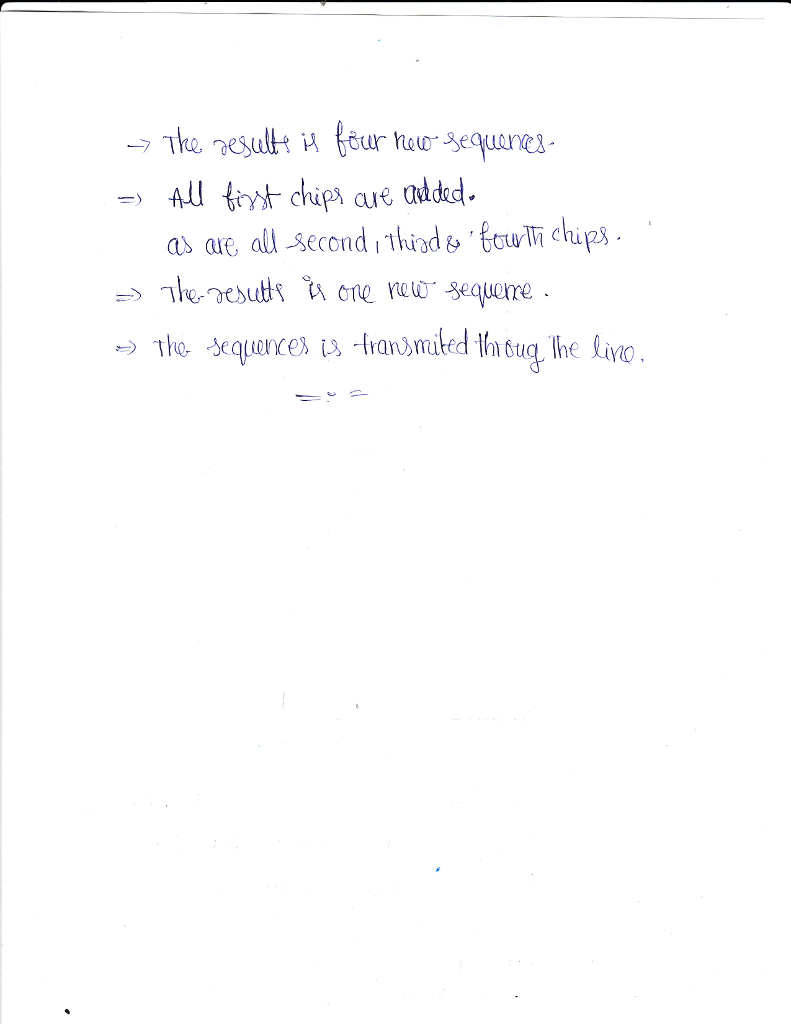 → The results is four new sequences.
⇒ All first chips are added.
as are all second, third & fourth chips.
⇒ The results is one new sequence.
⇒ The sequences is transmited throug the line.